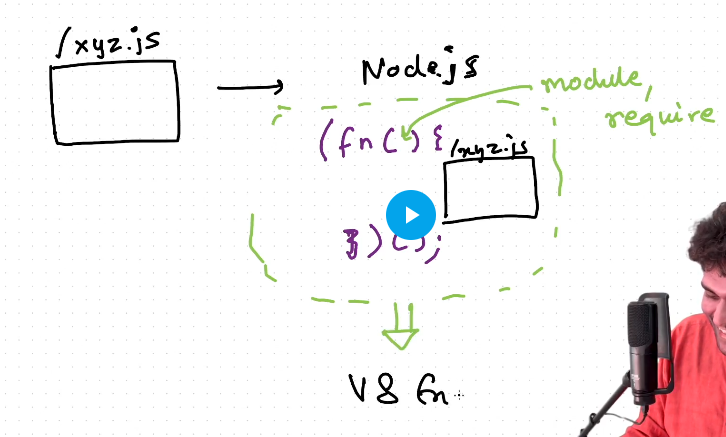 /xyz.js
Node.js
module,
require
(fn() {
/xyz.js
})();
V8 En